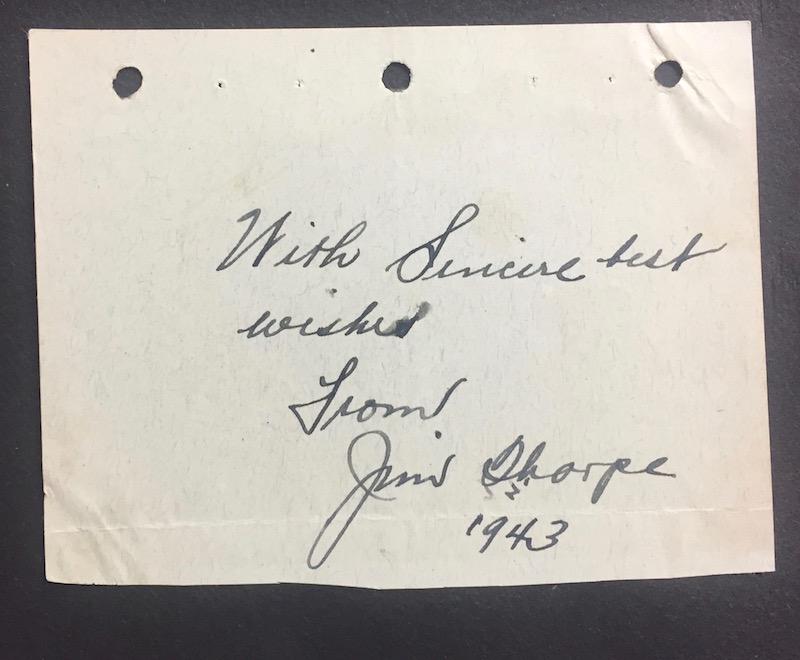 With Sincere best
wishes
From
Jim Thorpe
1943